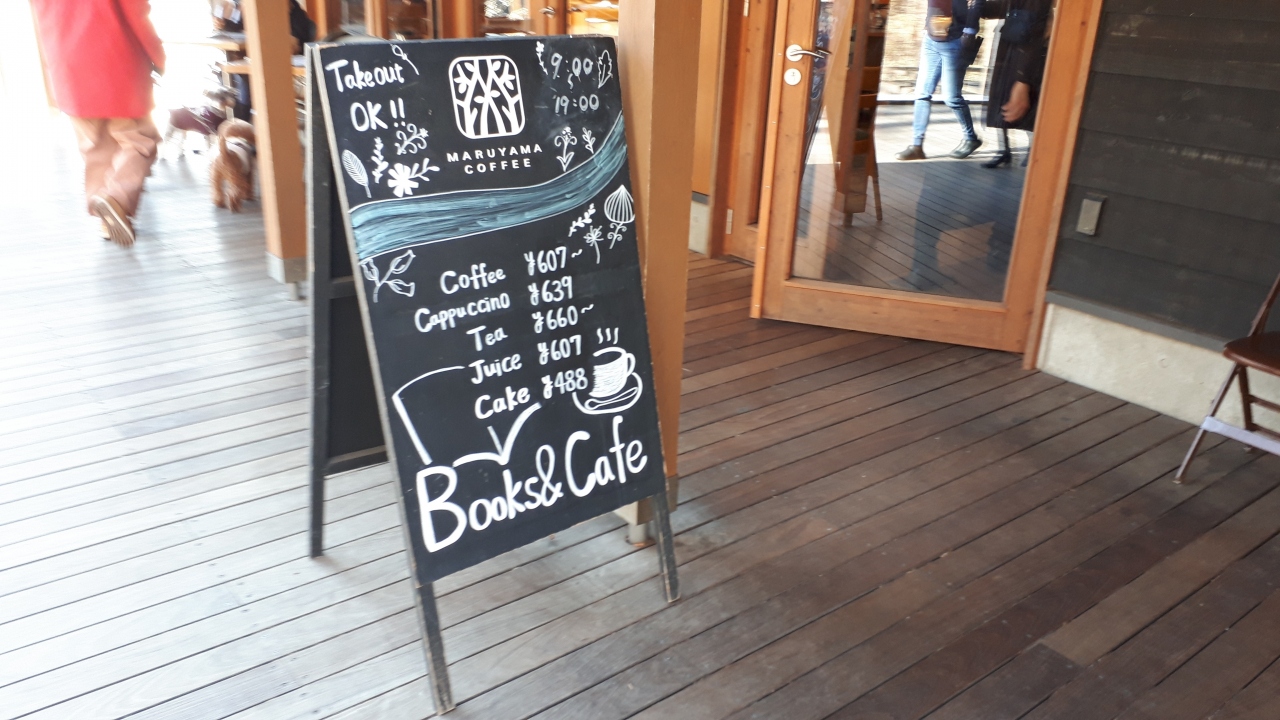 Takeout
OK!!
9:00
〜
19:00
MARUYAMA
COFFEE
Coffee ¥607~
Cappuccino ¥639
Tea ¥660~
Juice ¥607
Cake ¥488
Books&Cafe